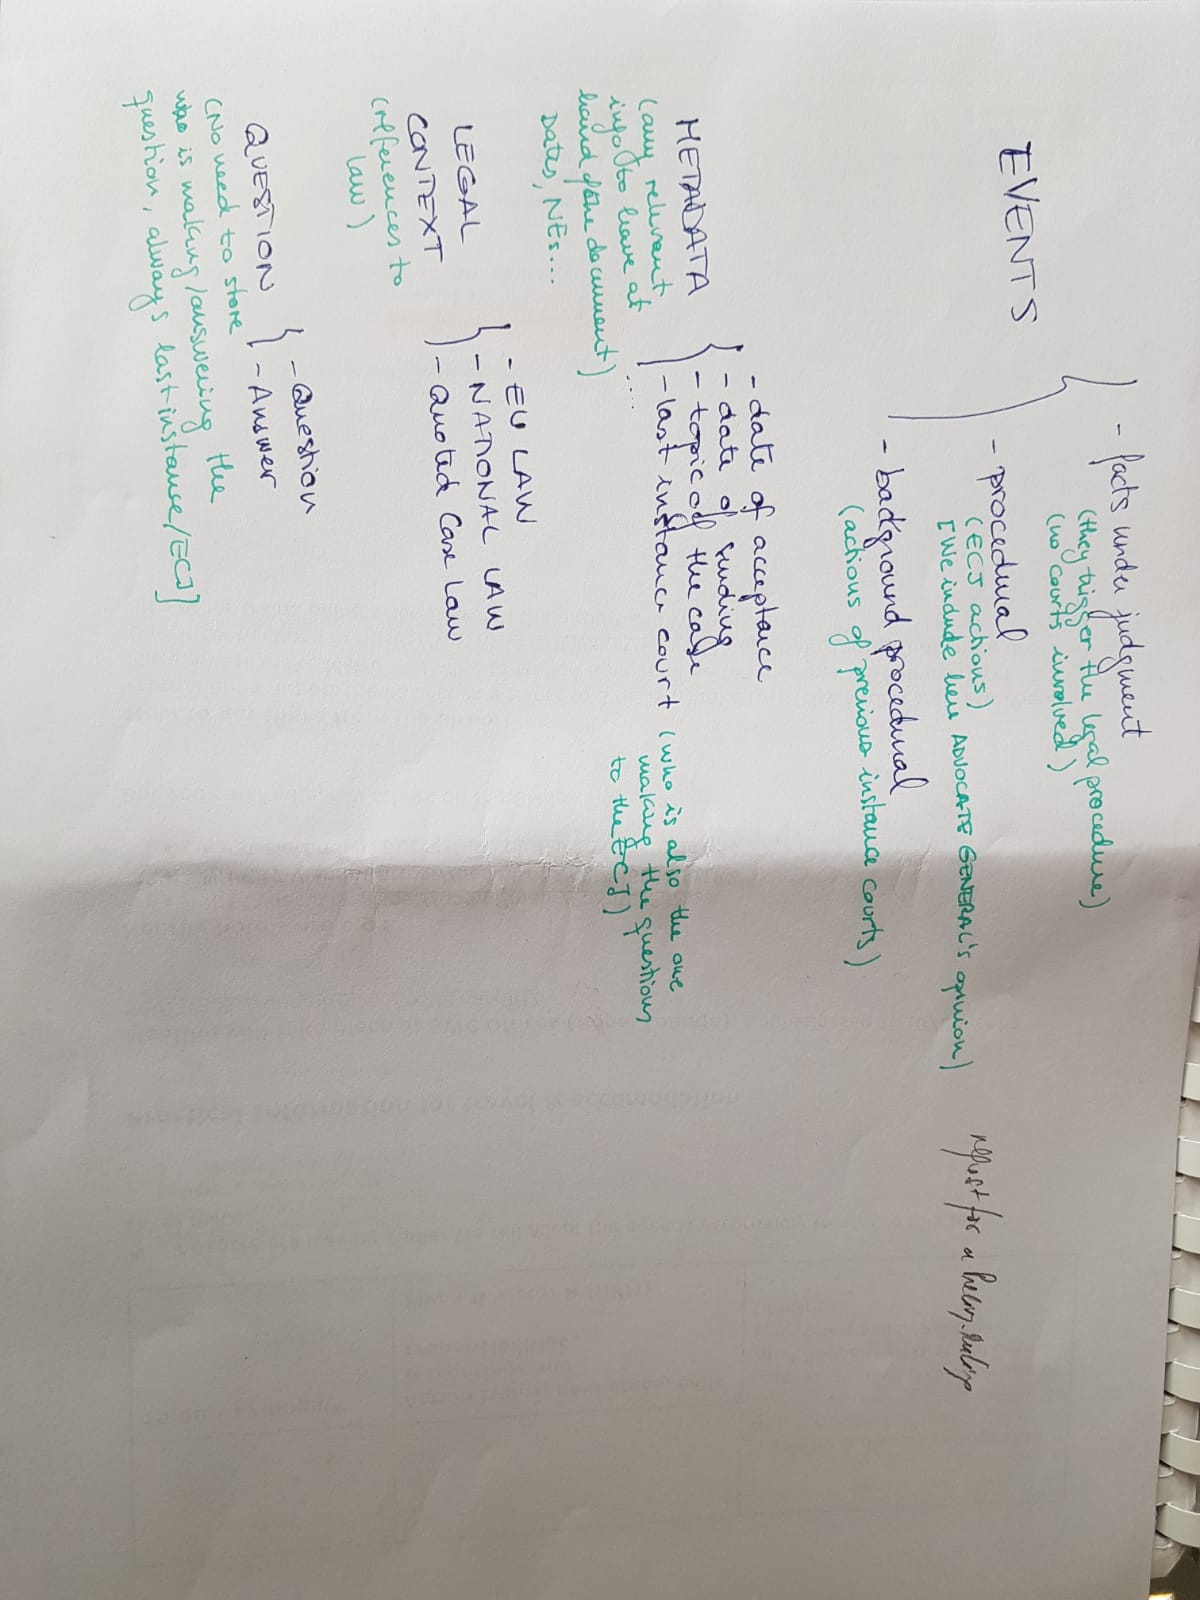 EVENTS
- facts under judgment
(they trigger the legal procedure)
(no courts involved)
- procedural
(ECJ actions)
[We include here ADVOCATE GENERAL'S opinion)
request for a
- background procedural
(actions of previous instance courts)
METADATA
(any relevant
info to have at
hand of the document)
Dates, NEs...
- date of acceptance
- date of sending
- topic of the case
- last instance court (who is also the one
making the questions
to the ECJ)
....
LEGAL
CONTEXT
(references to
law)
- EU LAW
- NATIONAL LAW
- Quoted Case Law
QUESTION
- Question
- Answer
(No need to store
who is making/answering the
question, always last instance/ECJ]